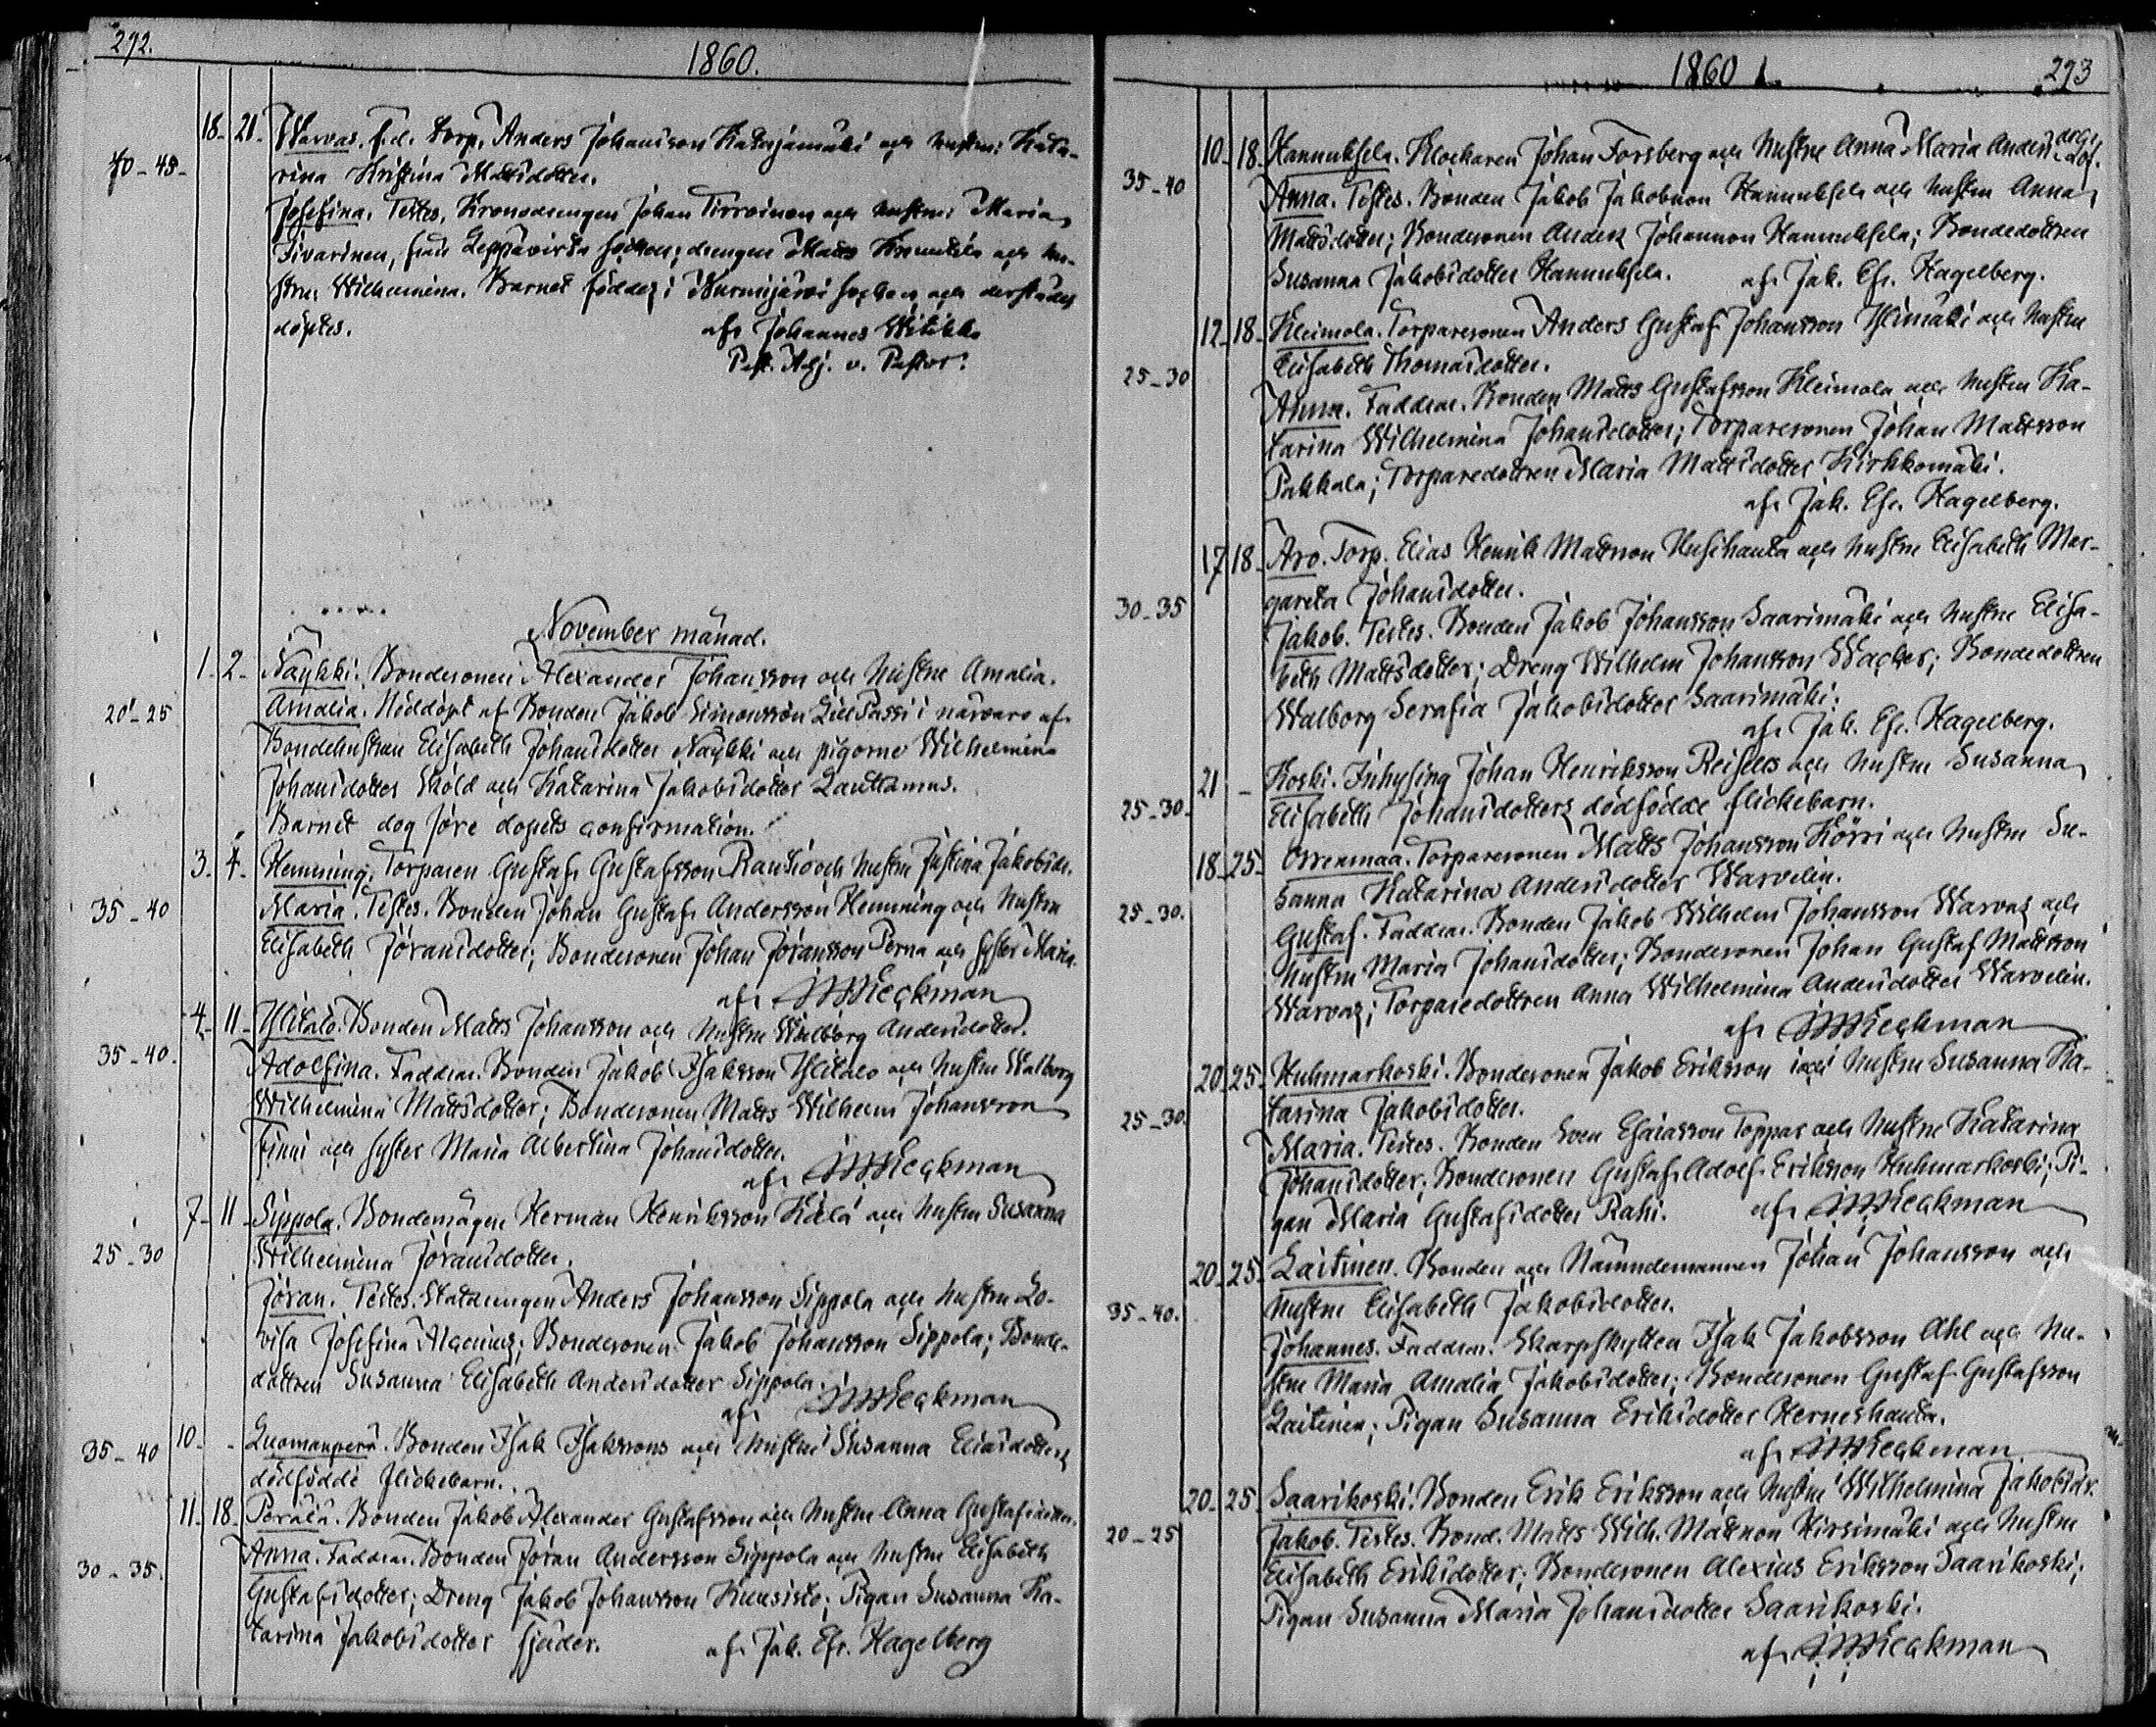 292.
1860.
18. 21. Warvas. F.d. Torp. Anders Johansson Katajamäki och hustru: Kata-
40-45-
rina Kristina Mattsdotter.
Josefina. Testes, Kronodrengen Johan Tirroinen och hustru: Maria
Tivarinen, från Leppävirta socken; drengen Matts och hu-
stru: Wilhelmina. Barnet föddes i Nurmijärvi socken och derstädes
döptes. af Johannes Witikka
Past. Adj. v. Pastor.
November månad.
1. 2. Näykki. Bondesonen Alexander Johansson och hustru Amalia.
20-25
Amalia. Nöddöpt af Bonden Jakob Simonsson Lill Passi i närvaro af
Bondehustrun Elisabeth Johansdotter Näykki och pigorne Wilhelmina
Johansdotter Sköld och Katarina Jakobsdotter Lauttamus.
Barnet dog före dopets confirmation.
3. 4. Hemming. Torparen Gustaf Gustafsson Rautio och hustru Justina Jakobsd.
35-40
Maria. Testes. Bonden Johan Gustaf Andersson Hemming och hustru
Elisabeth Jöransdotter; Bondesonen Johan Jöransson Perna och syster Maria.
af Wegkman
4. 11. Ylitalo. Bonden Matts Johansson och hustru Walborg Andersdotter.
35-40.
Adolfina. Faddrar. Bonden Jakob Isaksson Ylitalo och hustru Walborg
Wilhelmina Mattsdotter; Bondesonen Matts Wilhelm Johansson
Finni och syster Maria Albertina Johansdotter.
af Wegkman
7. 11. Sippola. Bondemågen Herman Henriksson Kälä och hustru Susanna
25-30
Wilhelmina Jöransdotter.
Jöran. Testes. Statdrengen Anders Johansson Sippola och hustru Lo-
visa Josefina Alcenius; Bondesonen Jakob Johansson Sippola; Bonde-
dottren Susanna Elisabeth Andersdotter Sippola.
af Wegkman
10. - Luomanperä. Bonden Isak Isakssons och hustru Susanna Eliasdotters
35-40
dödfödde flickebarn.
11. 18. Perälä. Bonden Jakob Alexander Gustafsson och hustru Anna Gustafsdotter.
30-35.
Anna. Faddrar. Bonden Jöran Andersson Sippola och hustru Elisabeth
Gustafsdotter; Dreng Jakob Johansson Kuusisto; Pigan Susanna Ka-
tarina Jakobsdotter Fjäder. af Jak. Efr. Hagelberg
1860 293
10. 18. Hannuksela. Klockaren Johan Forsberg och hustru Anna Maria Anders-
dot.
35-40
Anna. Testes. Bonden Jakob Jakobsson Hannuksela och hustru Anna
Mattsdotter; Bondesonen Anders Johansson Hannuksela; Bondedottren
Susanna Jakobsdotter Hannuksela. af Jak. Efr. Hagelberg.
12. 18. Kleimola. Torparesonen Anders Gustaf Johansson Ylimäki och hustru
25-30
Elisabeth Thomasdotter.
Anna. Faddrar. Bonden Matts Gustafsson Kleimola och hustru Ka-
tarina Wilhelmina Johansdotter; Torparesonen Johan Mattsson
Pakkala; Torparedottren Maria Mattsdotter Kirkkomäki.
af Jak. Efr. Hagelberg.
17 18. Aro. Torp. Elias Henrik Mattsson Husihauta och hustru Elisabeth Mar-
30-35
gareta Johansdotter.
Jakob. Testes. Bonden Jakob Johansson Saarimäki och hustru Elisa-
beth Mattsdotter; Dreng Wilhelm Johansson Wacker; Bondedottren
Walborg Serafia Jakobsdotter Saarimäki.
af Jak. Efr. Hagelberg.
21 - Koski. Inhysing Johan Henriksson Reisens och hustru Susanna
25-30.
Elisabeth Johansdotters dödfödde flickebarn.
18. 25. Orrenmaa. Torparesonen Matts Johansson Körri och hustru Su-
25-30.
sanna Katarina Andersdotter Warvelin.
Gustaf. Faddrar. Bonden Jakob Wilhelm Johansson Warvas och
hustru Maria Johansdotter; Bondesonen Johan Gustaf Mattsson
Warvas; Torparedottren Anna Wilhelmina Andersdotter Warvelin.
af Wegkman
20. 25. Huhmarkoski. Bondesonen Jakob Eriksson och hustru Susanna Ka-
25-30.
tarina Jakobsdotter.
Maria. Testes. Bonden Sven Esaiasson Toppar och hustru Katarina
Johansdotter; Bondesonen Gustaf Adolf Eriksson Huhmarkoski; Pi-
gan Maria Gustafsdotter Rahi. af Wegkman
20. 25. Laitinen. Bonden och Nämndemannen Johan Johansson och
35-40.
hustru Elisabeth Jakobsdotter.
Johannes. Faddrar. Skarpskytten Isak Jakobsson Ahl och hu-
stru Maria Amalia Jakobsdotter; Bondesonen Gustaf Gustafsson
Laitinen; Pigan Susanna Eriksdotter Herneshauta.
af Wegkman
20. 25. Saarikoski. Bonden Erik Eriksson och hustru Wilhelmina Jakobsdr.
20-25
Jakob. Testes. Bond. Matts Wilh. Mattsson Hirsimäki och hustru
Elisabeth Eriksdotter; Bondesonen Alexius Eriksson Saarikoski;
Pigan Susanna Maria Johansdotter Saarikoski.
af Wegkman